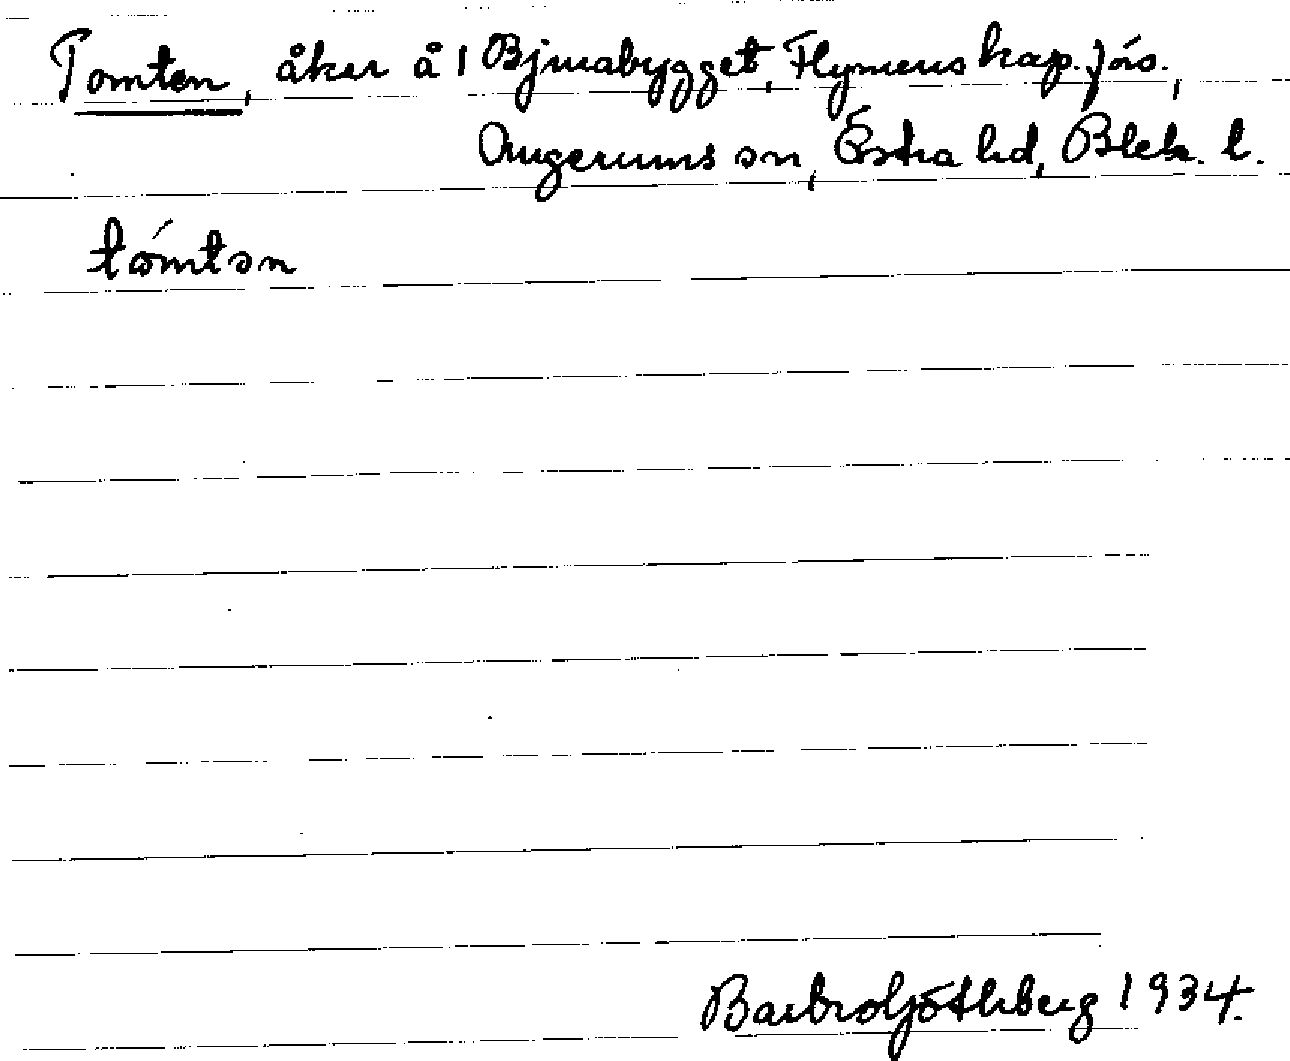 Tomten, åker å 1 Bjurabygget, Flymens kap.förs.,
Augerums sn, Östra hd, Blek. l.
tómtən
Barbro Göthberg 1934.